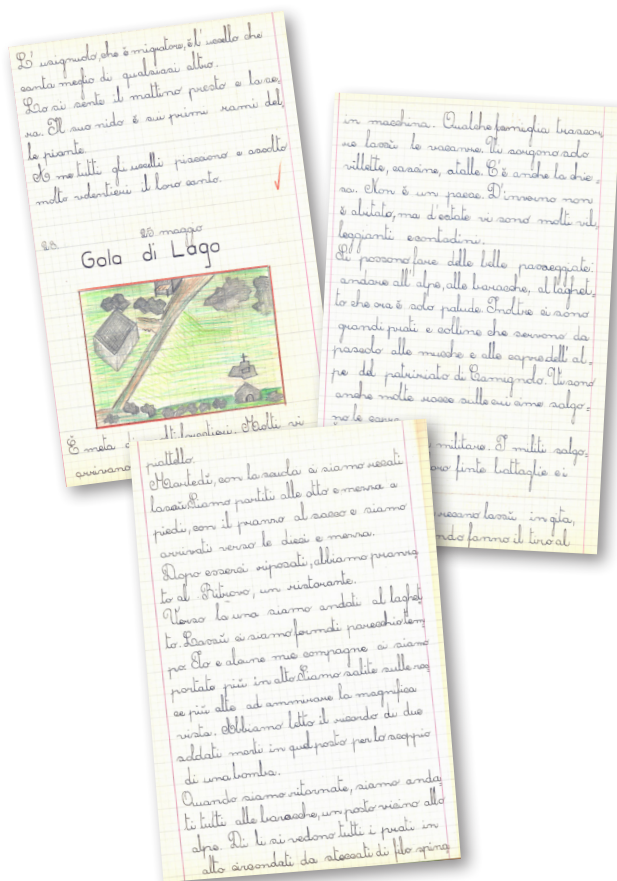 L'usignuolo, che è migratore, è l'uccello che
canta meglio di qualsiasi altro.
Lo si sente il mattino presto e la se,
ra. Il suo nido è sui primi rami del,
le piante.
A me tutti gli uccelli piacciono e ascolto
molto volentieri il loro canto.
23. 25. maggio
Gola di Lago
È meta di molti forestieri. Molti vi
arrivano
in macchina. Qualche famiglia trascor,
re lassù le vacanze. Vi sorgono solo
villette, cascine, stalle. C'è anche la chie-
sa. Non è un paese. D'inverno non
è abitato, ma d'estate vi sono molti vil,
leggianti e contadini.
Si possono fare delle belle passeggiate:
andare all'alpe, alle baracche, al laghet-
to che ora è solo palude. Inoltre ci sono
grandi prati e colline che servono da
pascolo alle mucche e alle capre dell'al-
pe del patriziato di Camignolo. Vi sono
anche molte rocce sulle cui cime salgo-
no le capre.
militare. I militi salgo-
loro finte battaglie e i
recano lassù in gita,
ndo fanno il tiro al
piattello.
Martedì, con la scuola ci siamo recati
lassù. Siamo partiti alle otto e mezza a
piedi, con il pranzo al sacco e siamo
arrivati verso le dieci e mezza.
Dopo esserci riposati, abbiamo pranza
to al Ritrovo, un ristorante.
Verso la una siamo andati al laghet
to. Lassù ci siamo fermati parecchio tem
po. Io e alcune mie compagne ci siamo
portate più in alto. Siamo salite sulle roc
ce più alte ad ammirare la magnifica
vista. Abbiamo letto il ricordo di due
soldati morti in quel posto per lo scoppio
di una bomba.
Quando siamo ritornate, siamo anda
ti tutti alle baracche, un posto vicino allo
alpe. Di lì si vedono tutti i prati in
alto circondati da steccati di filo spina